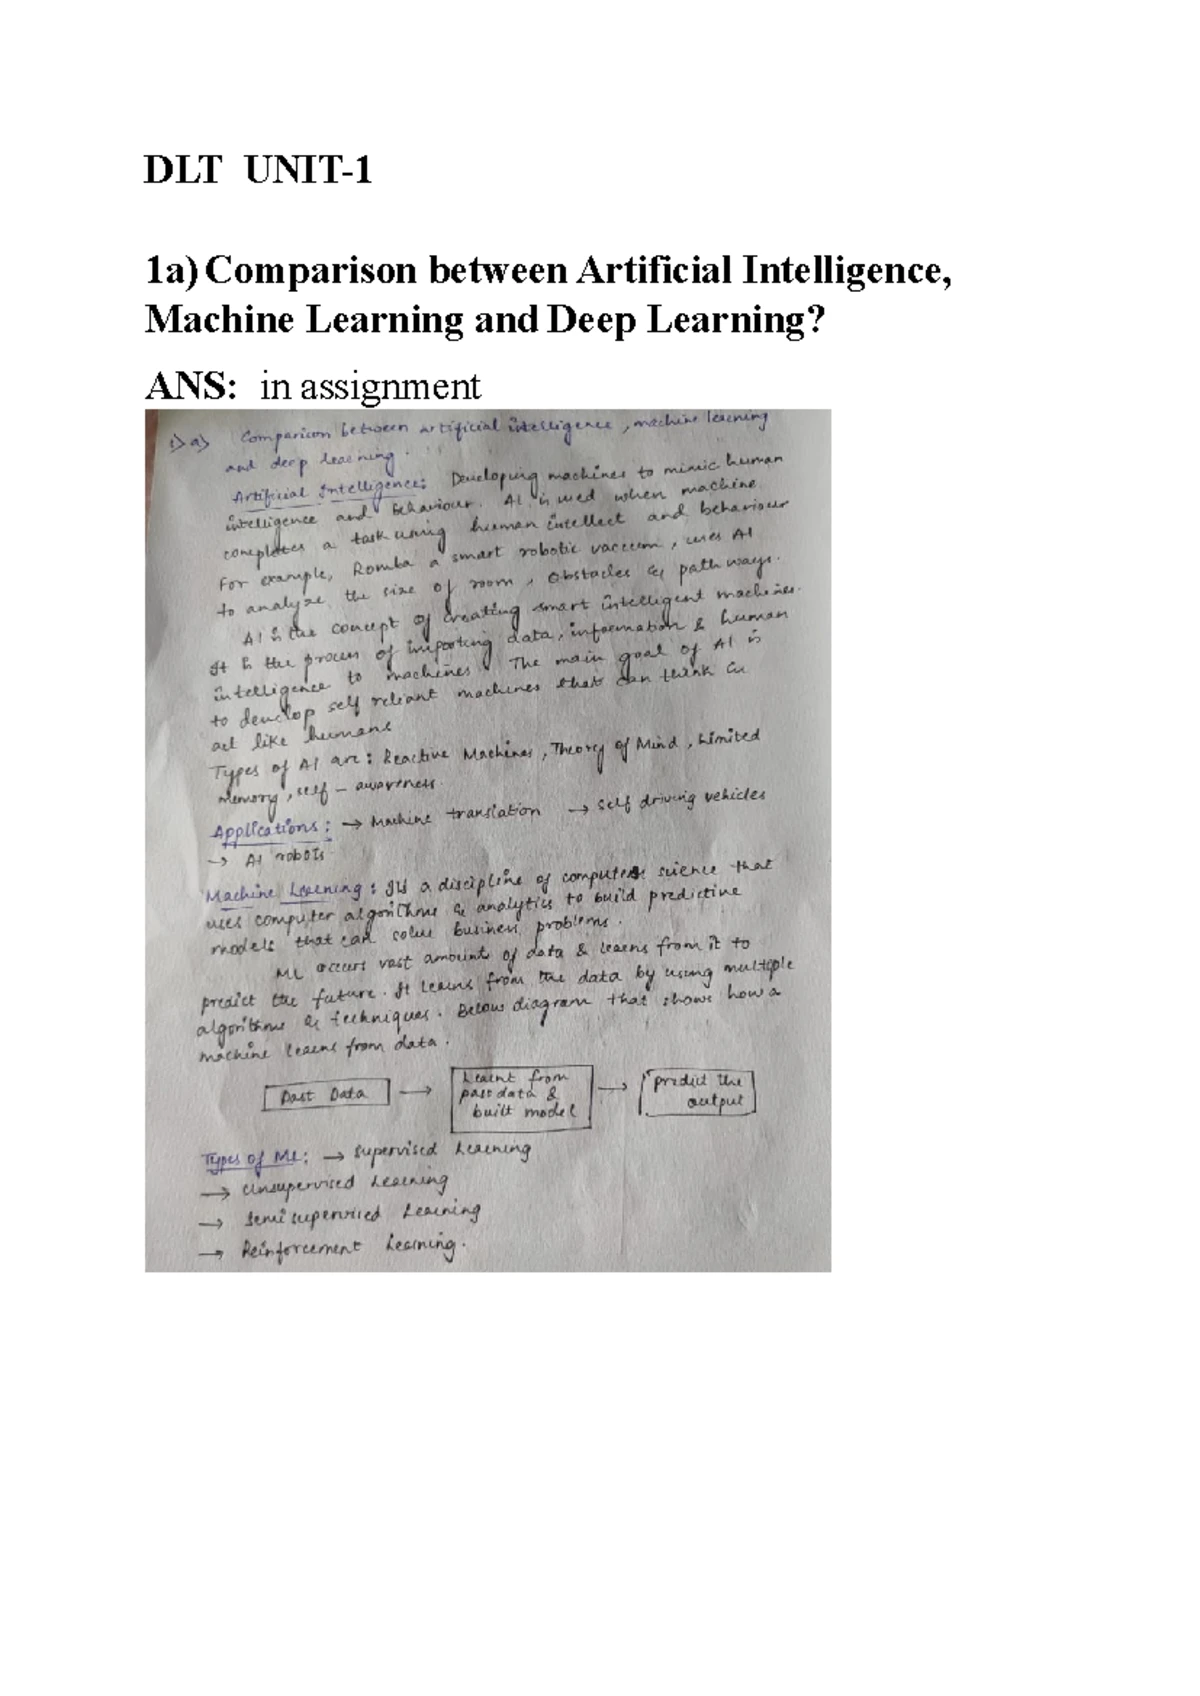 DLT UNIT-1
1a) Comparison between Artificial Intelligence,
Machine Learning and Deep Learning?
ANS: in assignment
1) a) Comparison between artificial intelligence, machine learning
and deep learning.
Artificial Intelligence: Developing machines to mimic human
intelligence and behaviour. AI is used when machine
completes a task using human intellect and behaviour
For example, Romba a smart robotic vaccum, uses AI
to analyze the size of room, obstacles & path ways.
AI is the concept of creating smart intelligent machines.
It is the process of importing data, information & human
intelligence to machines. The main goal of AI is
to develop self reliant machines that can think &
act like humans
Types of AI are: Reactive Machines, Theory of Mind, Limited
memory, self-awareness.
Applications: → Machine translation → Self driving vehicles
→ AI robots
Machine Learning: It's a discipline of computer science that
uses computer algorithms & analytics to build predictive
models that can solve business problems.
ML occurs vast amounts of data & learns from it to
predict the future. It learns from the data by using multiple
algorithms & techniques. Below diagram that shows how a
machine learns from data.
Past Data → Learnt from past data & built model → predict the output
Types of ML: → Supervised Learning
→ Unsupervised Learning
→ Semi supervised Learning
→ Reinforcement Learning.